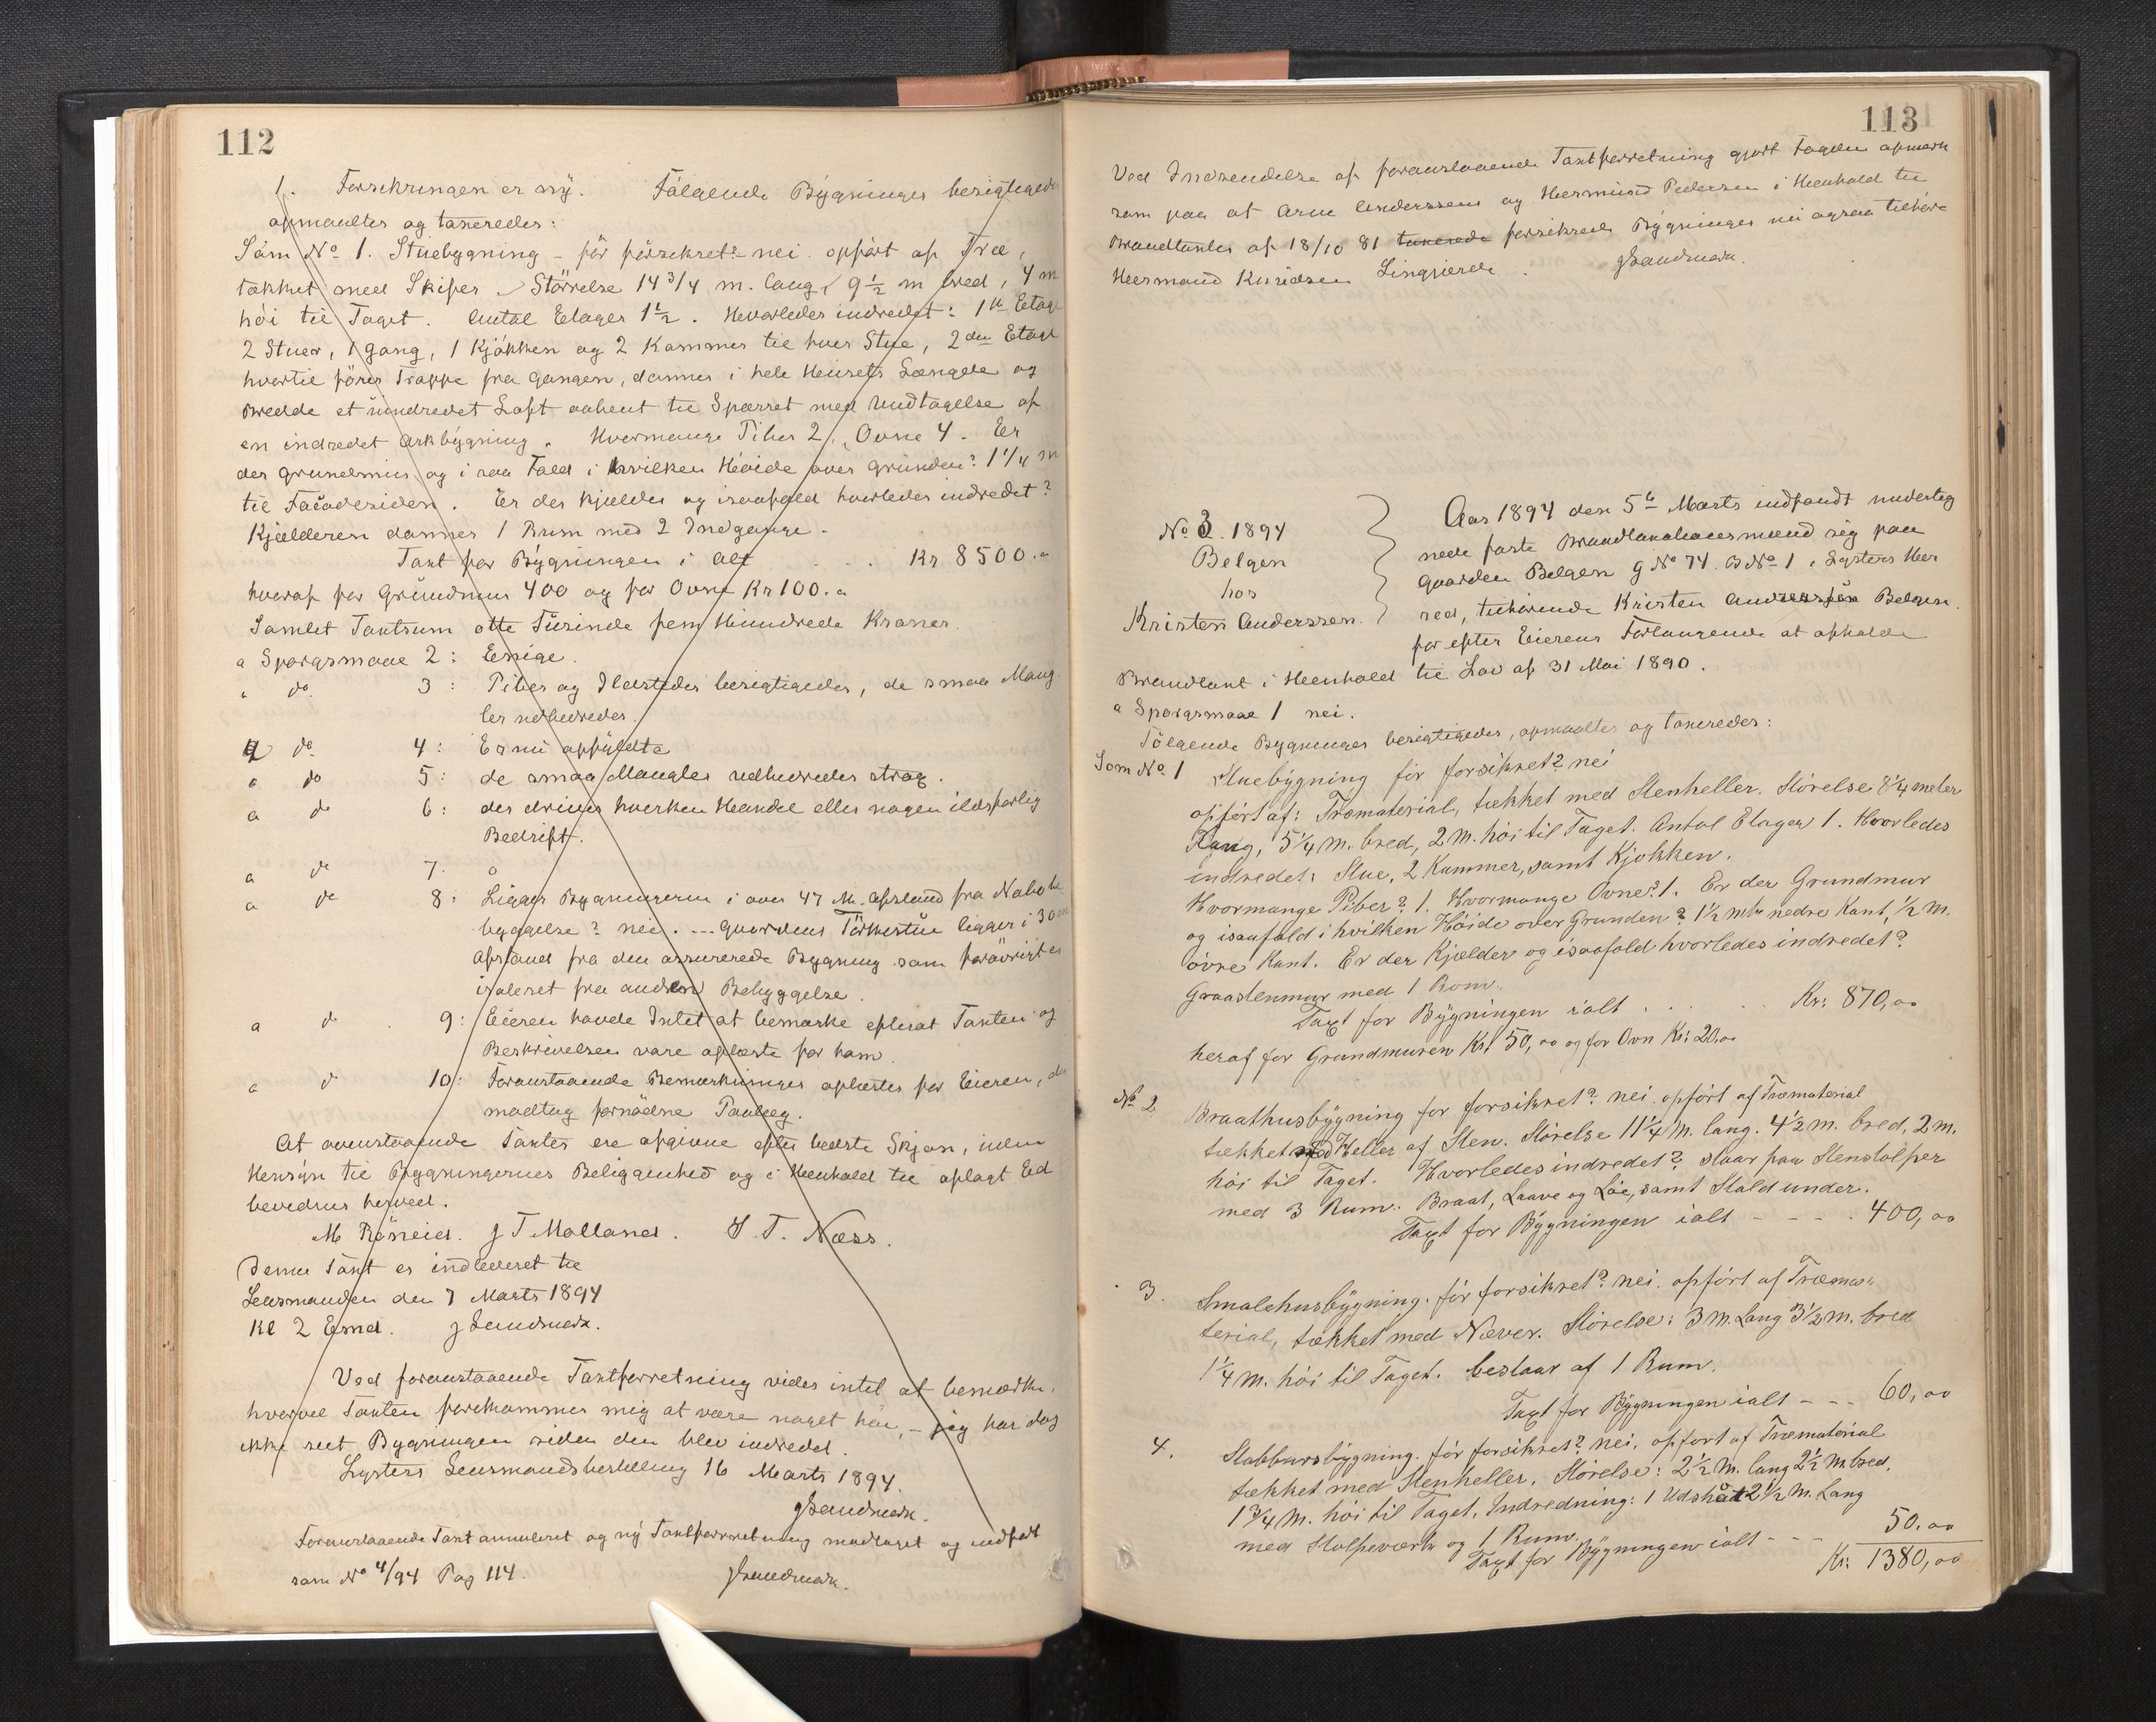 112
1. Forsikringen er ny. Følgende Bygninger besigtigedes
opmaaltes og taxeredes:
Som No 1. Stuebygning - før forsikret? - nei. opført af Træ,
tækket med Skifer. Størrelse 14 3/4 m. lang, 9 1/2 m bred, 4 m
høi til Taget. Antal Etager 1 1/2. Hvorledes indredet: 1ste Etage
2 Stuer, 1 gang, 1 Kjøkken og 2 Kammer til hver Stue, 2den Etage
hvortil fører Trappe fra gangen, dannes i hele Husets Længde og
Bredde et uindredet Loft aabent til Sparret med Undtagelse af
en indredet Arkbygning. Hvormange Piber 2, Ovne 4. Er
der Grundmur og i saa Fald i hvilken Høide over Grunden? 1 1/4 m
til Facadesiden. Er der Kjælder og isaafald hvorledes indredet?
Kjælderen dannes 1 Rum med 2 Indgange.
Taxt for Bygningen i Alt . . . Kr 8500.
hveraf for Grundmur 400 og for Ovne Kr 100.
Samlet Taxtsum otte Tusinde fem Hundrede Kroner.
a Spørgsmaal 2: Enige.
a do 3: Piber og Ildsteder besigtigedes, de smaa Mang
ler udbedredes.
a do 4: Er nu opfyldte
a do 5: de smaa Mangler udbedredes strax.
a do 6: der drives hverken Handel eller nogen ildsfarlig
Bedrift.
a do 7. o
a do 8: Ligger Bygningerne i over 47 M. Afstand fra Nabobe
byggelse? nei. -- Gaardens Tørkestue ligger i 30 m
Afstand fra den assurerede Bygning som forøvrigt er
isoleret fra anden Bebyggelse.
a do 9: Eieren havde Intet at bemærke efterat Taxten og
Beskrivelsen vare oplæste for ham.
a do 10: Foranstaaende Bemærkninger oplæstes for Eieren, der
modtog fornødne Paalæg.
At ovenstaaende Taxter ere afgivne efter bedste Skjøn, uden
Hensyn til Bygningernes Beliggenhed og i Henhold til aflagt Ed
bevidnes herved.
M Røneid. J T Molland. S. T. Næss.
Denne Taxt er indleveret til
Lensmanden den 7 Marts 1894
Kl 2 Emd. J Sandnæs.
Ved foranstaaende Taxtforretning vides intet at bemærke,
hvorvel Taxten forekommer mig at være noget høi, - jeg har dog
ikke seet Bygningen siden den blev indredet.
Lysters Lensmandsbestilling 16 Marts 1894.
J Sandnæs.
Foranstaaende Taxt annuleret og ny Taxtforretning modtaget og indført
som No 4/94 Pag 114. J Sandnæs.
113
Ved Indsendelse af foranstaaende Taxtforretning gjort Fogden opmærk
som paa at Arne Anderssens og Hermund Pedersen i Henhold til
Brandtaxter af 18/10 81 taxerede forsikrede Bygninger nu ogsaa tilhøre
Hermund Knudsen Lingjerde. J Sandnæs.
No 3. 1894
Belgen
hos
Kristen Anderssen.
Aar 1894 den 5te Marts indfandt underteg
nede faste Brandtaxationsmænd sig paa
Gaarden Belgen G No 74. B No 1 i Lysters Her
red, tilhørende Kristen Anderssen Belgen.
for efter Eierens Forlangende at afholde
Brandtaxt i Henhold til Lov af 31 Mai 1890.
a Spørgsmaal 1 nei.
Følgende Bygninger besigtigedes, opmaaltes og taxeredes:
Som No 1 Stuebygning før forsikret? nei
opført af: Træmaterial, tækket med Stenheller. Størelse 8 1/4 meter
Lang, 5 1/4 M. bred, 2 M. høi til Taget. Antal Etager 1. Hvorledes
indredet: Stue, 2 Kammer, samt Kjøkken.
Hvormange Piber? 1. Hvormange Ovne? 1. Er der Grundmur
og isaafald i hvilken Høide over Grunden? 1 1/2 mtr nedre Kant, 1/2 M.
øvre Kant. Er der Kjælder og isaafald hvorledes indredet?
Graastenmur med 1 Rom.
Taxt for Bygningen ialt . . . Kr: 870,00
heraf for Grundmuren Kr: 50,00 og for Ovn Kr: 20,00
No 2 Braathusbygning før forsikret? nei. opført af Træmaterial
tækket med Heller af Sten. Størelse 11 1/4 M. lang. 4 1/2 M. bred, 2 M.
høi til Taget. Hvorledes indredet? staar paa Stenstolper
med 3 Rum. Braat, Laave og Løe, samt Stald under.
Taxt for Bygningen ialt - - - . 400,00
3. Smalehusbygning. før forsikret? nei. opført af Træma-
terial, tækket med Næver. Størelse: 3 M. Lang 3 1/2 M. bred
1 1/4 M. høi til Taget. bestaar af 1 Rum.
Taxt for Bygningen ialt - - - 60,00
4. Stabbursbygning. før forsikret? nei. opført af Træmaterial
tækket med Stenheller. Størelse: 2 1/2 M. lang 2 1/2 M. bred.
1 3/4 M. høi til Taget. Indredning: 1 Udskåt 2 1/2 M. Lang
med Stolpeværk og 1 Rum.
Taxt for Bygningen ialt - - - 50.00
Kr: 1380,00